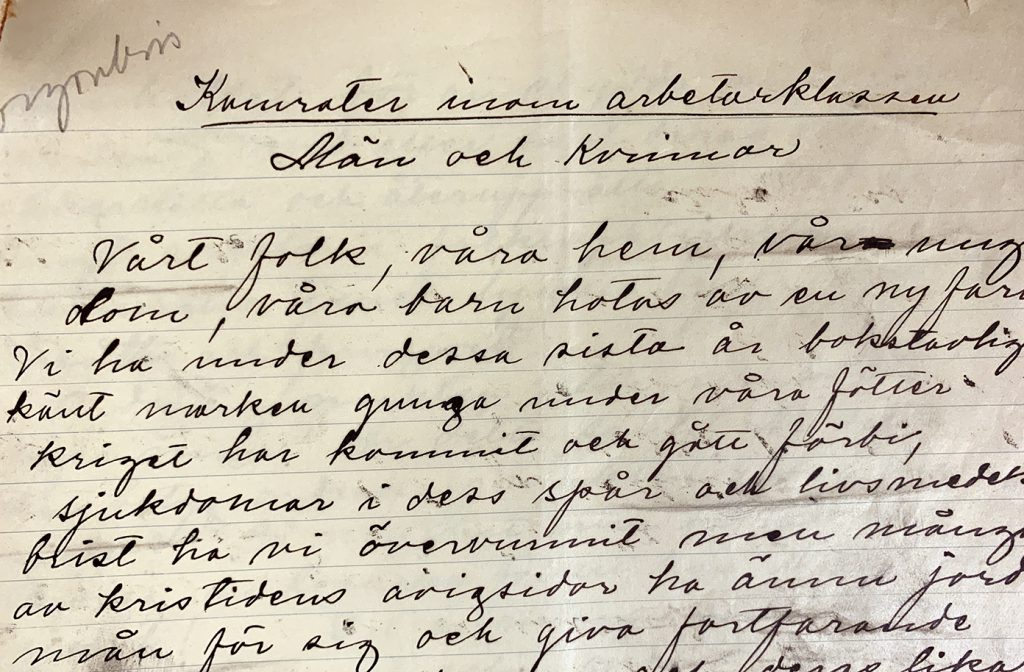 Kamrater inom arbetarklassen
Män och Kvinnor
Vårt folk, våra hem, vår ung
dom, våra barn hotas av en ny fara
Vi ha under dessa sista år bokstavlig
känt marken gunga under våra fötter
kriget har kommit och gått förbi,
sjukdomar i dess spår och livsmedels
brist ha vi övervunnit men många
av kristidens avigsidor ha ännu jord
mån för sig och giva fortfarande
och dess lika